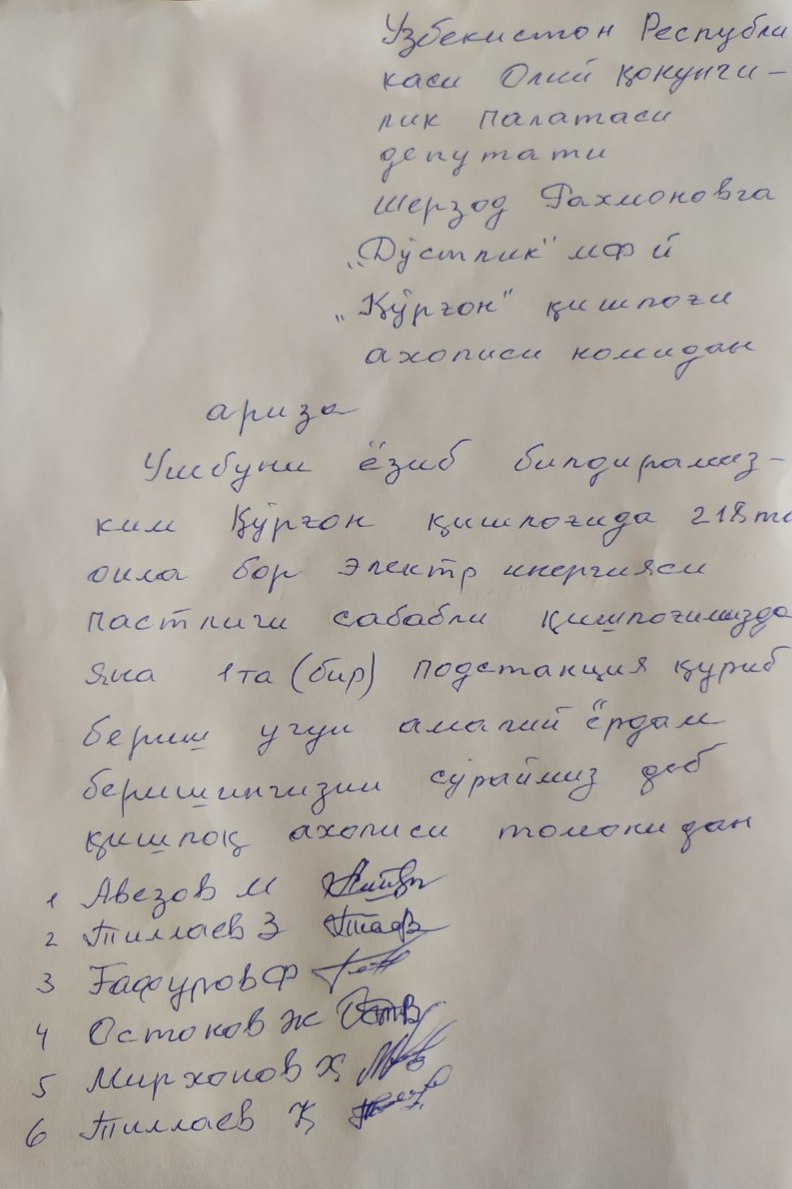 Узбекистон Республи
каси Олий қонунчи-
лик палатаси
депутати
Шерзод Рахмоновга
"Дўстлик" мфй
"Қўрғон" қишлоғи
ахолиси номидан
ариза
Ушбуни ёзиб билдирамиз-
ким Қўрғон қишлоғида 218 та
оила бор электр инергияси
пастлиги сабабли қишлоғимизда
яна 1та (бир) подстанция қуриб
бериш учун амалий ёрдам
беришингизни сўраймиз деб
қишлоқ ахолиси томонидан
1 Авезов М
2 Тиллаев З
3 Ғафуров Ф
4 Остонов Ж
5 Мирхонов Ҳ
6 Тиллаев Қ